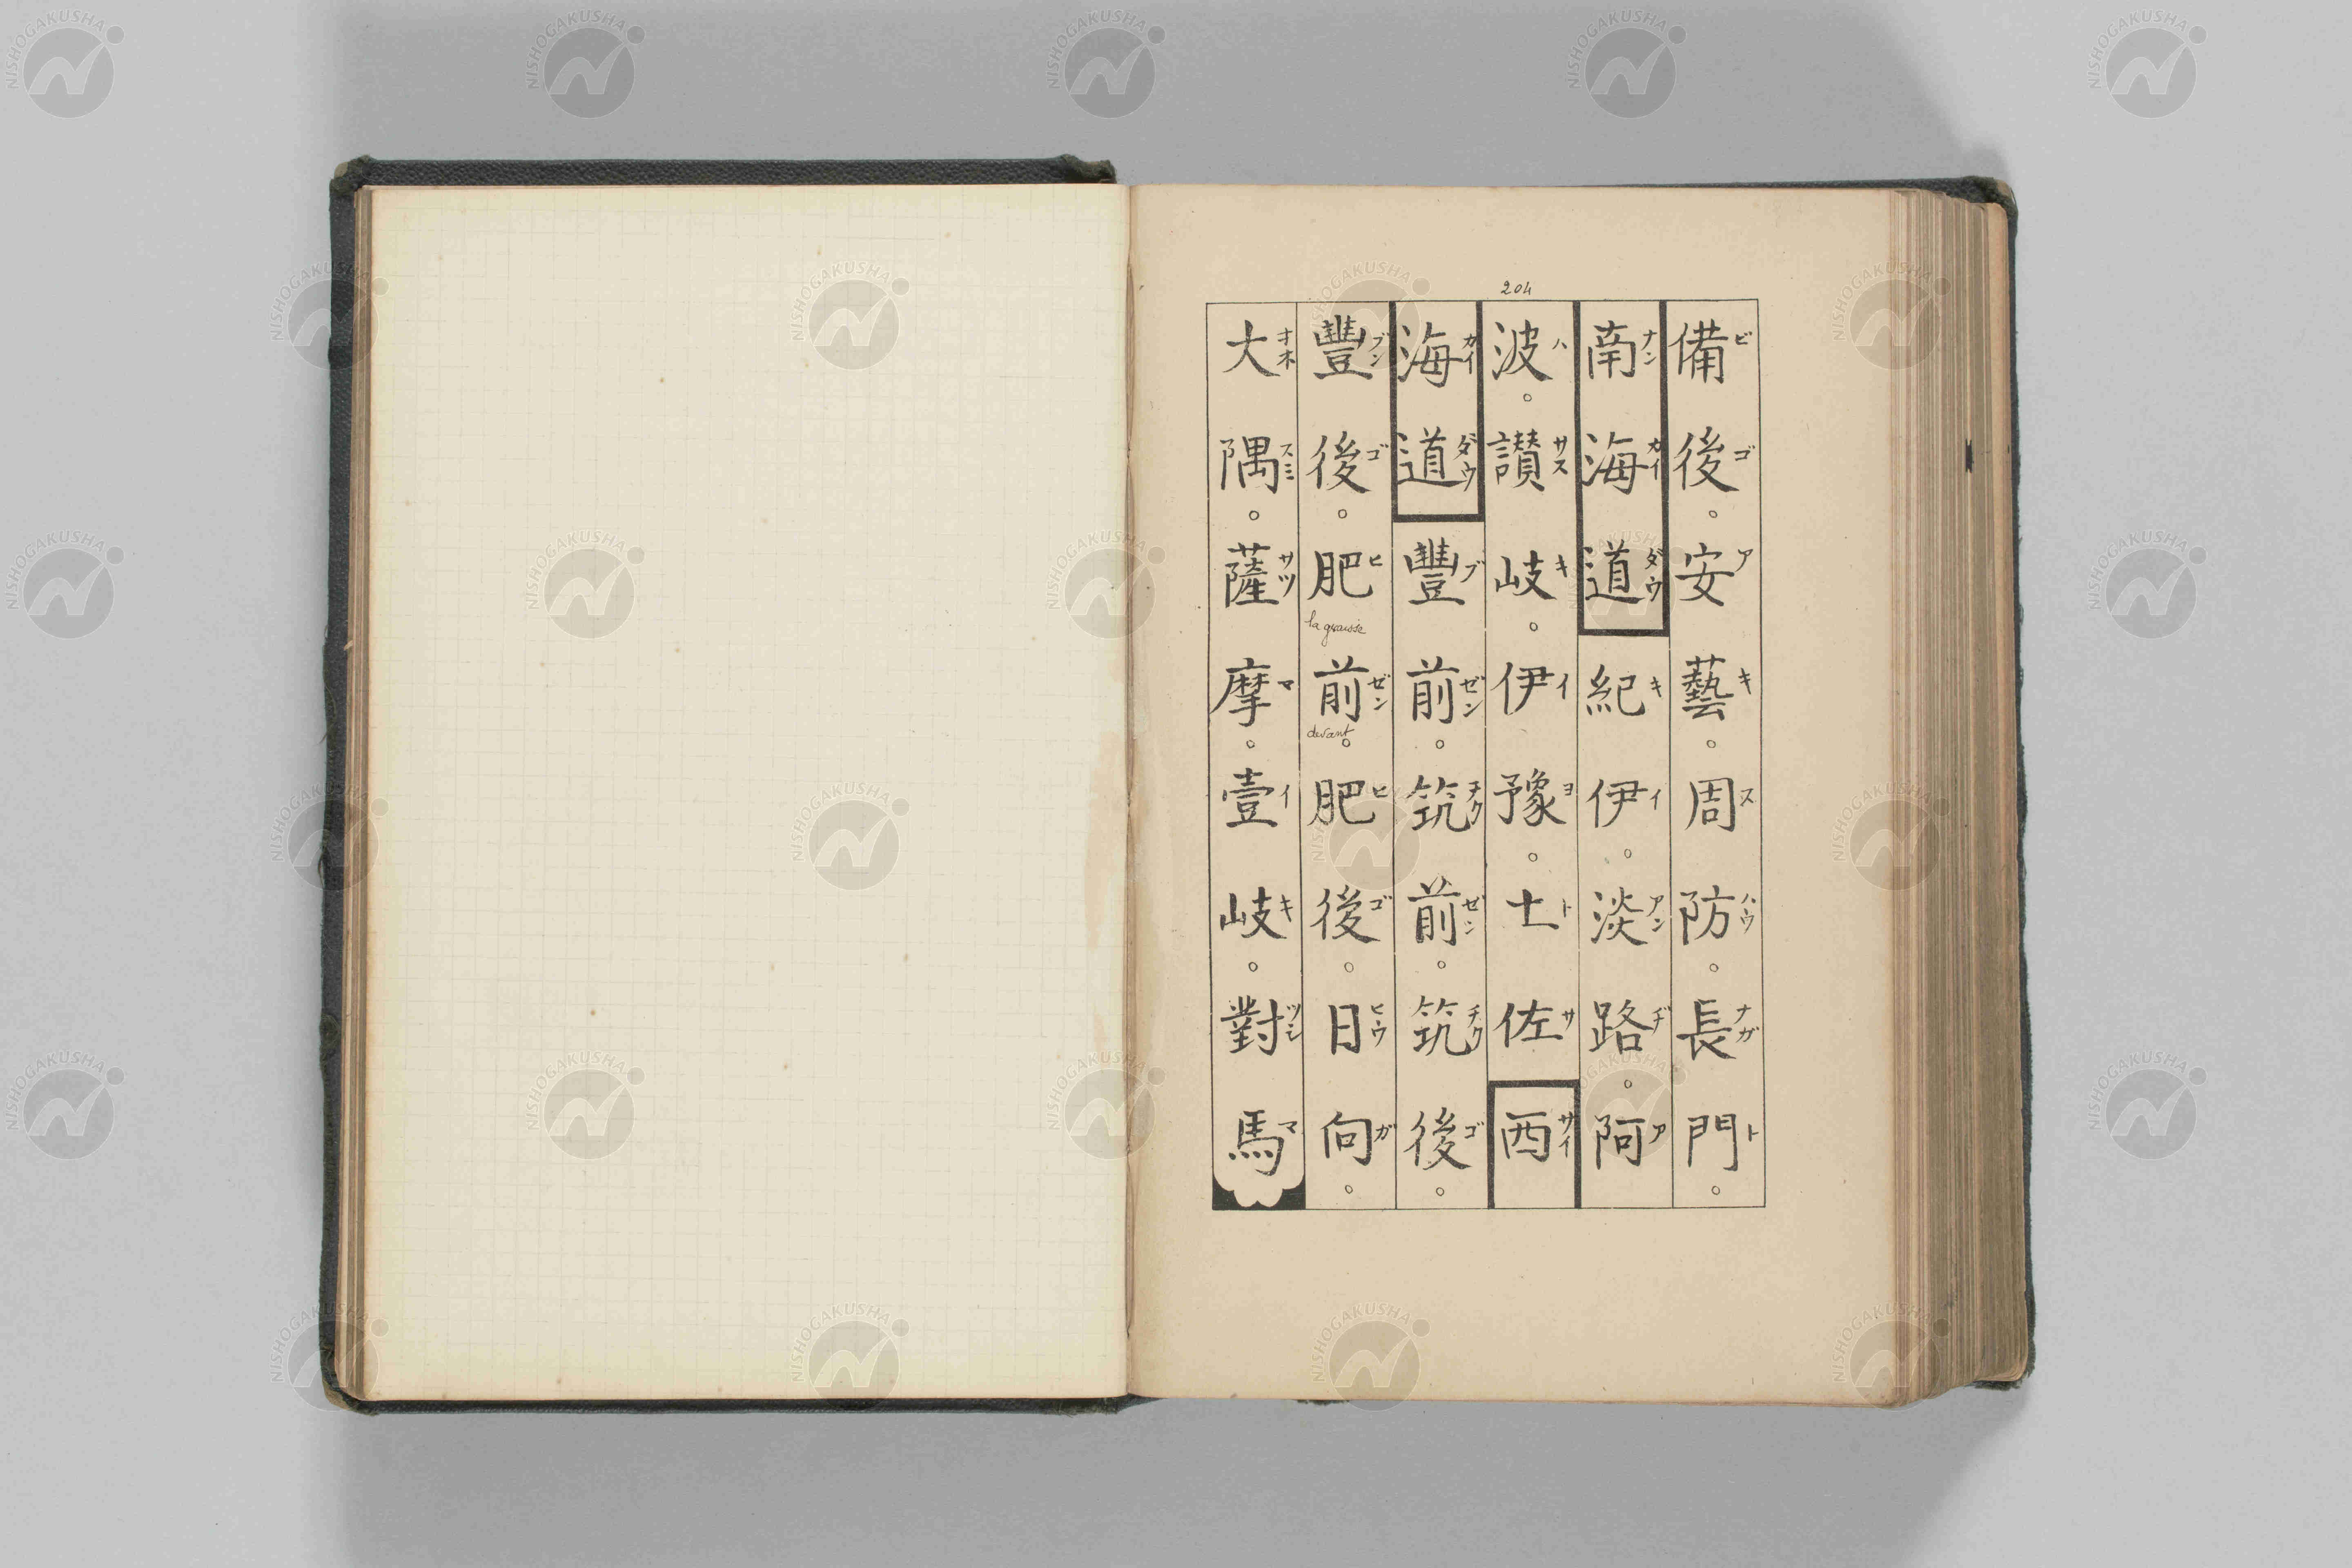 204
備後。安藝。周防。長門。
ビゴアキスハウナガト
南海道紀伊。淡路。阿
ナンカイダウキイアンヂア
波。讃岐。伊豫。土佐西
ハサスキイヨトササイ
海道豐前。筑前。筑後。
カイダウブゼンチクゼンチクゴ
豐後。肥前。肥後。日向。
ブンゴヒゼンヒゴヒウガ
la graisse
devant
大隅。薩摩。壹岐。對馬
オホスミサツマイキツシマ
NISHOGAKUSHA